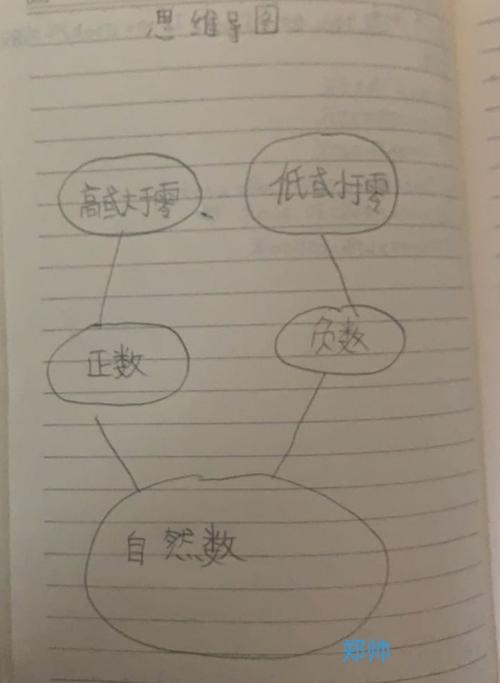 思维导图
高或大于零、
低或小于零
正数
负数
自然数
郑帅